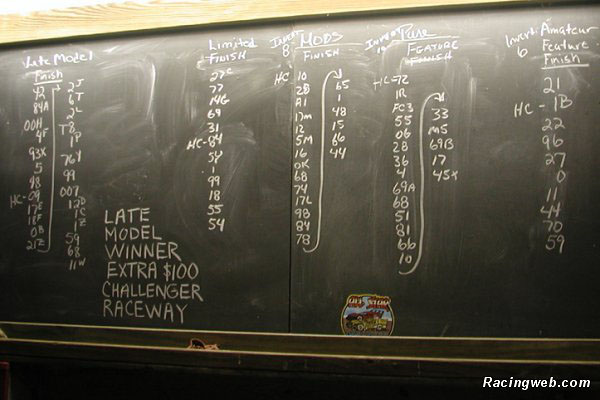 Late Model
Finish
42
84A
00H
4F
93X
5
98
HC - 09
0B
21Z
2J
6T
2L
T8
1P
76Y
99
007
12D
1C
1Z
59
68
11W
LATE
MODEL
WINNER
EXTRA $100
CHALLENGER
RACEWAY
Limited
FINISH
27C
77
14G
69
31
HC-84
5Y
1
99
18
55
54
Invert
8
MODS
FINISH
HC 10
2B
A1
17m
12
5M
16
0K
68
74
17L
98
84
78
65
1
48
15
66
44
Invert
10
Pure
FEATURE
FINISH
HC-72
1R
FC3
55
06
28
36
4
69A
68
51
81
66
10
33
M5
69B
17
45x
Invert
6
Amateur
Feature
Finish
21
HC - 1B
22
96
27
0
11
44
70
59
Racingweb.com